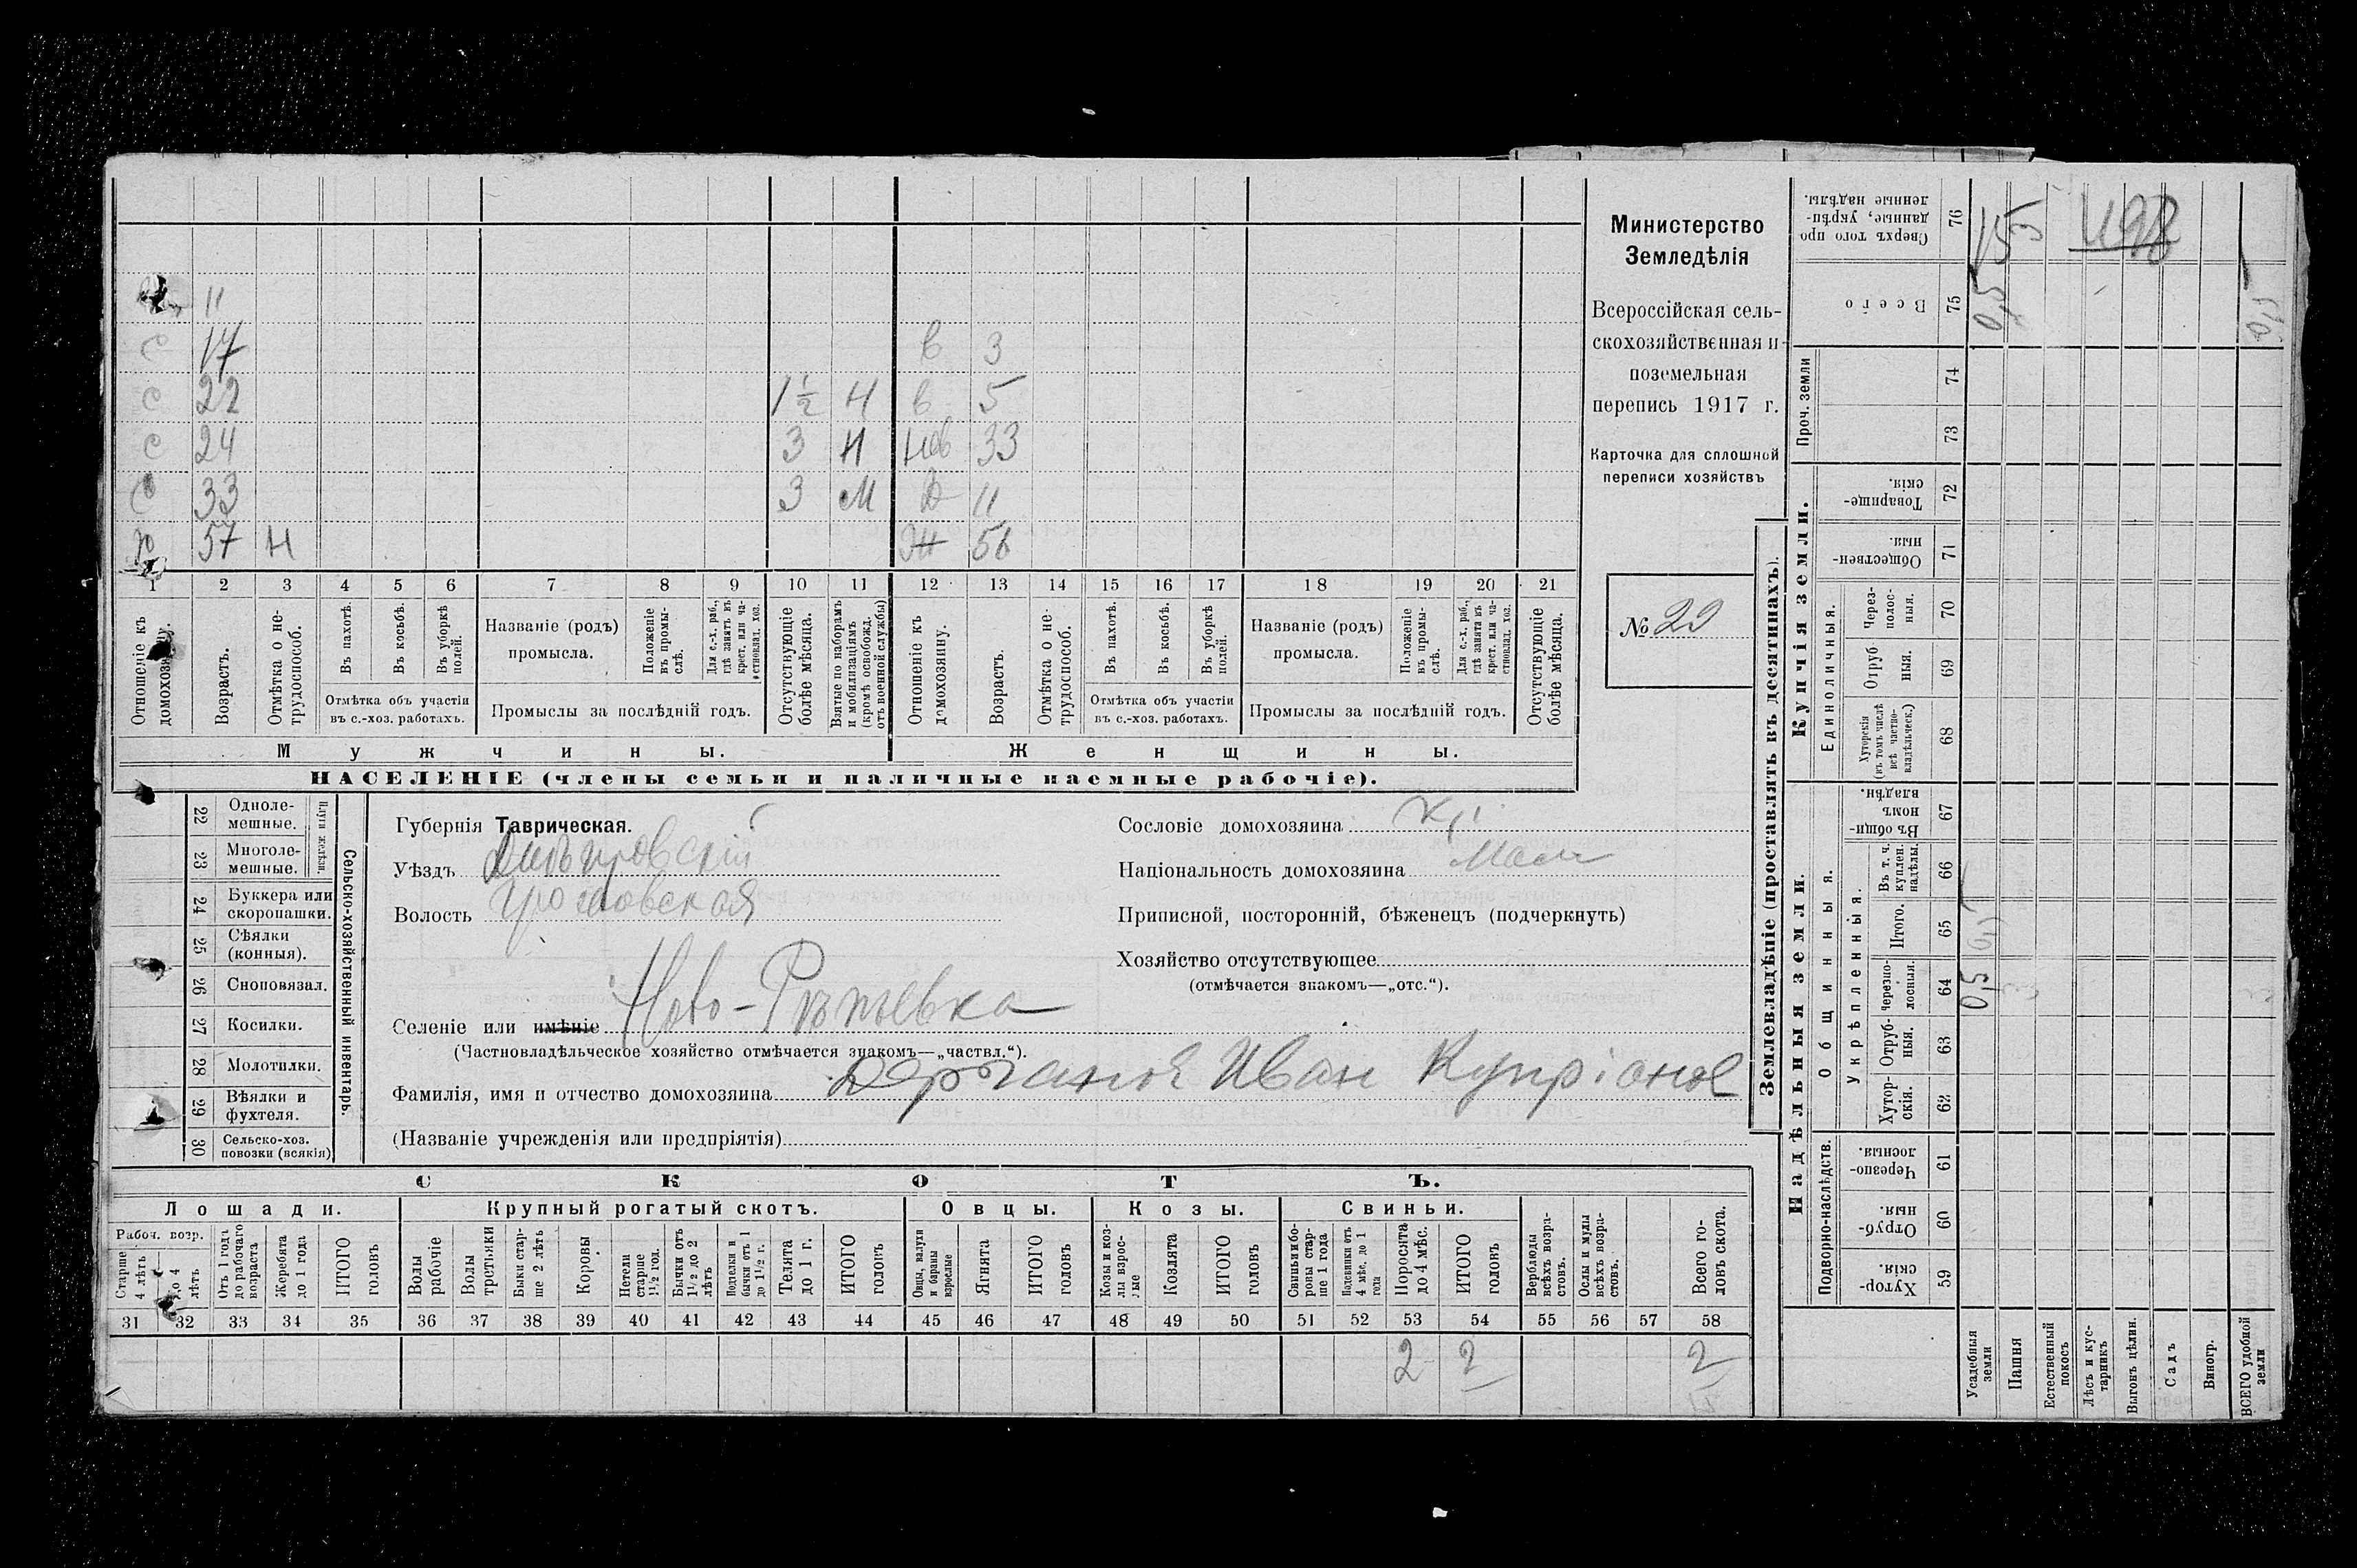 11
С 17 В 3
С 22 1 ½ Н В 5
С 24 3 Н Нев 33
С 33 3 М Д 11
Х 57 Н Ж 56
1 2 3 4 5 6 7 8 9 10 11 12 13 14 15 16 17 18 19 20 21
Отношеніе къ домохозяину.
Возрастъ.
Отмѣтка о нетрудоспособ.
Въ пахотѣ.
Въ косьбѣ.
Въ уборкѣ полей.
Отмѣтка объ участіи
въ с.-хоз. работахъ.
Названіе (родъ)
промысла.
Положеніе въ промыслѣ.
Для с.-х. раб., гдѣ занятъ въ крест. или частновлад. хоз.
Промыслы за послѣдній годъ.
Отсутствующіе болѣе мѣсяца.
Взятые по наборамъ и мобилизаціямъ (кромѣ освобожд. отъ военной службы)
Отношеніе къ домохозяину.
Возрастъ.
Отмѣтка о нетрудоспособ.
Въ пахотѣ.
Въ косьбѣ.
Въ уборкѣ полей.
Отмѣтка объ участіи
въ с.-хоз. работахъ.
Названіе (родъ)
промысла.
Положеніе въ промыслѣ.
Для с.-х. раб., гдѣ занята въ крест. или частновлад. хоз.
Промыслы за послѣдній годъ.
Отсутствующіе болѣе мѣсяца.
Мужчины.
Женщины.
НАСЕЛЕНІЕ (члены семьи и наличные наемные рабочіе).
Министерство
Земледѣлія
Всероссійская сель-
скохозяйственная и
поземельная
перепись 1917 г.
Карточка для сплошной
переписи хозяйствъ
№ 29
22 Одноле-
мешные.
23 Многоле-
мешные.
Плуги желѣзн.
24 Буккера или
скоропашки.
25 Сѣялки
(конныя).
26 Сноповязал.
27 Косилки.
28 Молотилки.
29 Вѣялки и
фухтеля.
30 Сельско-хоз.
повозки (всякія)
Сельско-хозяйственный инвентарь.
Губернія Таврическая.
Уѣздъ Днѣпровскій
Волость
Селеніе или имѣніе Ново-Рѣпьевка
(Частновладѣльческое хозяйство отмѣчается знакомъ—„частвл.“).
Фамилія, имя и отчество домохозяина Иван Купріанов
(Названіе учрежденія или предпріятія)
Сословіе домохозяина Кр
Національность домохозяина Мал
Приписной, посторонній, бѣженецъ (подчеркнуть)
Хозяйство отсутствующее
(отмѣчается знакомъ—„отс.“).
СКОТЪ.
Лошади.
Крупный рогатый скотъ.
Овцы.
Козы.
Свиньи.
Рабоч. возр.
Старше 4 лѣтъ
до 4 лѣтъ
Отъ 1 года до рабочаго возраста
Жеребята до 1 года
ИТОГО головъ
Волы рабочіе
Волы третьяки
Быки старше 2 лѣтъ
Коровы
Нетели старше 1½ год.
Бычки отъ 1½ до 2 лѣтъ
Подтелки и бычки отъ 1 до 1½ г.
Телята до 1 г.
ИТОГО головъ
Овцы, валухи и бараны взрослые
Ягнята
ИТОГО головъ
Козы и козлы взрослые
Козлята
ИТОГО головъ
Свиньи и боровы старше 1 года
Подсвинки отъ 4 мѣс. до 1 года
Поросята до 4 мѣс.
ИТОГО головъ
Верблюды всѣхъ возрастовъ.
Ослы и мулы всѣхъ возрастовъ.
Всего головъ скота.
31 32 33 34 35 36 37 38 39 40 41 42 43 44 45 46 47 48 49 50 51 52 53 54 55 56 57 58
2 2 2
Землевладѣніе (проставлять въ десятинахъ).
Купчія земли.
Надѣльныя земли.
Сверхъ того проданные, укрѣпленные надѣлы. 76
Всего 75
Проч. земли 74 73
Товарищескія. 72
Общественныя. 71
Единоличныя.
Черезполосныя. 70
Отрубныя. 69
Хуторскія (въ томъ числѣ всѣ частновладѣльческ.) 68
Общинныя.
Въ общинномъ владѣн. 67
Укрѣпленныя.
Въ т. ч. куплен. надѣлы. 66
Итого. 65
Черезполосныя. 64
Отрубныя. 63
Хуторскія. 62
Подворно-наслѣдств.
Черезполосныя. 61
Отрубныя. 60
Хуторскія. 59
0,5
0,5
Усадебныя земли
Пашня
Естественный покосъ
Лѣсъ и кустарникъ
Выгонъ цѣлин.
Садъ
Виногр.
ВСЕГО удобной земли